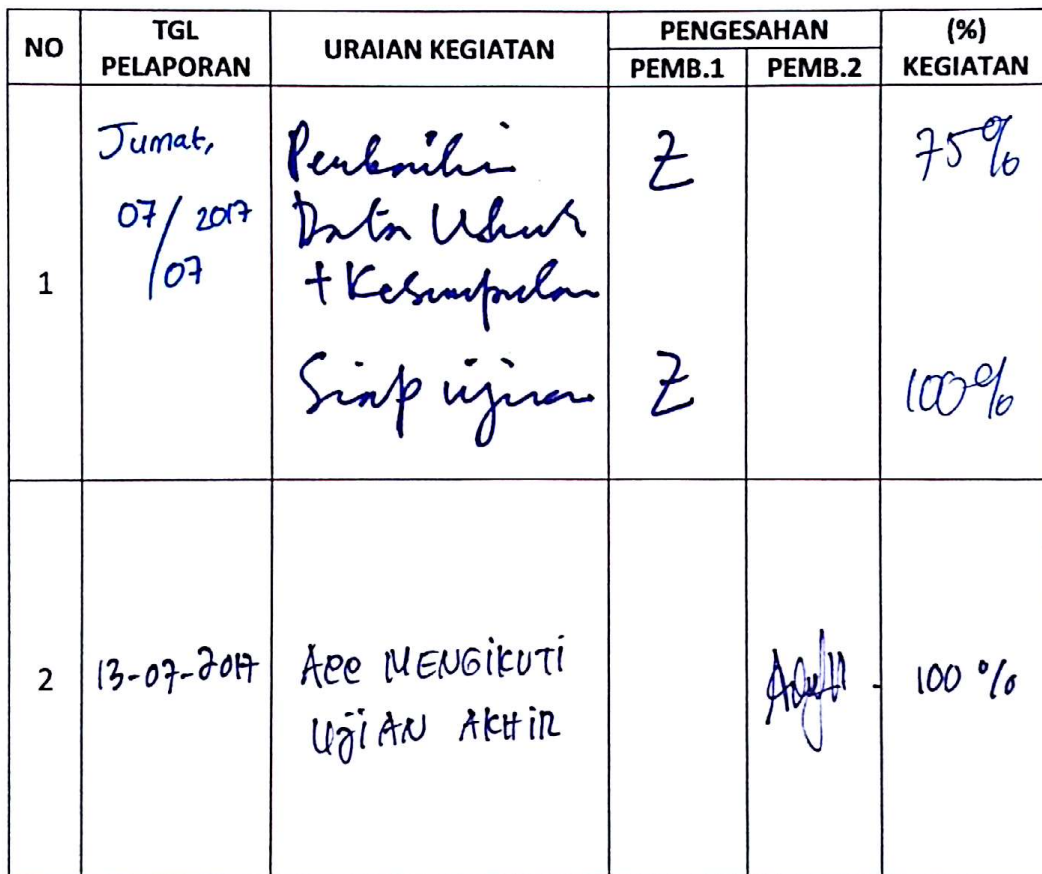 NO
TGL PELAPORAN
URAIAN KEGIATAN
PENGESAHAN
PEMB.1
PEMB.2
(%) KEGIATAN
1
Jumat,
07/07 2017
Perbaiki
Data Ukur
+ Kesimpulan
Z
75%
Siap ujian
Z
100%
2
13-07-2017
Acc MENGIKUTI
UJIAN AKHIR
100 %